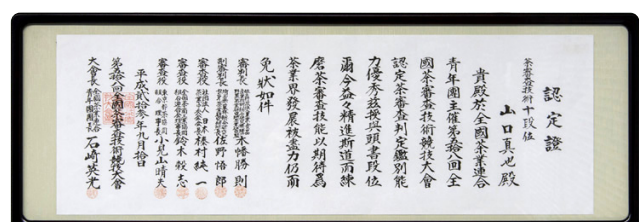 認定證
茶審査技術十段位
山口真也殿
貴殿於全国茶業連合
青年團主催第拾八回全
國茶審査技術競技大會
認定茶審査判定鑑別能
力優秀茲授與頭書段位
爾今益々精進斯道而練
磨茶審査技能以期待為
茶業界發展被盡力仍而
免狀如件
審判長 木幡勝則
副審判長 佐野悟郎
審査役 社団法人日本 村純一
審査役 鈴木毅志
審査役 理事長 小見山晴夫
平成弐拾参年九月拾日
第拾八回全國茶審査技術競技大會
大會長 石崎英光